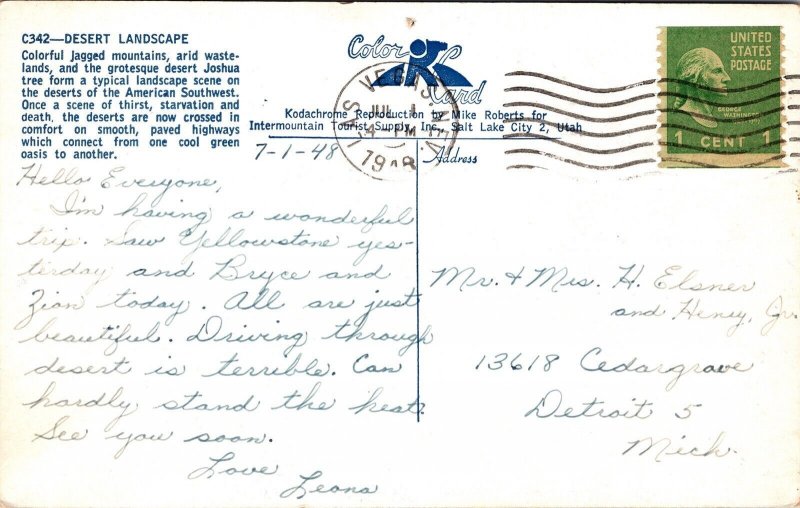 C342—DESERT LANDSCAPE
Colorful Jagged mountains, arid waste-
lands, and the grotesque desert Joshua
tree form a typical landscape scene on
the deserts of the American Southwest.
Once a scene of thirst, starvation and
death, the deserts are now crossed in
comfort on smooth, paved highways
which connect from one cool green
oasis to another.
Color
Card
Kodachrome Reproduction by Mike Roberts for
Intermountain Tourist Supply Inc., Salt Lake City 2, Utah
Address
LAS VEGAS, NEV.
JUL 1
PM
1948
UNITED
STATES
POSTAGE
GEORGE
WASHINGTON
1 CENT 1
7-1-48
Hello Everyone,
I'm having a wonderful
trip. Saw Yellowstone yes-
terday and Bryce and
Zion today. All are just
beautiful. Driving through
desert is terrible. Can
hardly stand the heat.
See you soon.
Love
Leona
Mr. + Mrs. H. Elsner
and Henry, Jr.
13618 Cedargrove
Detroit 5
Mich.